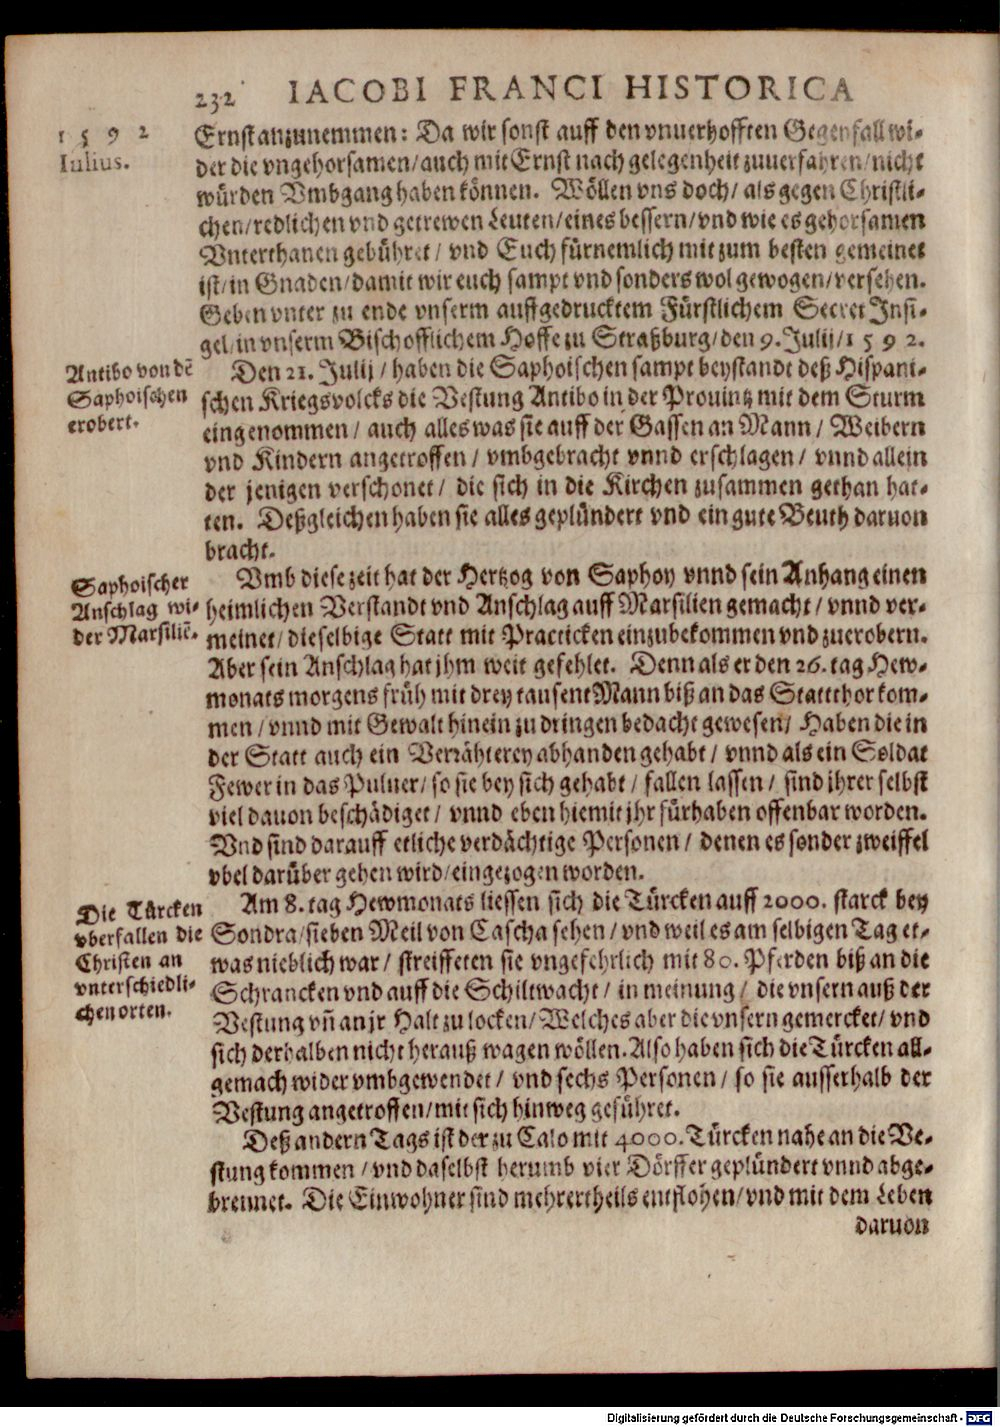 232 IACOBI FRANCI HISTORICA
1592
Iulius.
Ernst anzunemmen: Da wir sonst auff den vnuerhofften Gegenfall wi-
der die vngehorsamen/auch mit Ernst nach gelegenheit zuuerfahren/nicht
würden Vmbgang haben können. Wöllen vns doch/ als gegen Christli-
chen/redlichen vnd getrewen Leuten/eines bessern/vnd wie es gehorsamen
Vnterthanen gebühret/ vnd Euch fürnemlich mit zum besten gemeinet
ist/in Gnaden/damit wir euch sampt vnd sonders wol gewogen/versehen.
Geben vnter zu ende vnserm auffgedrucktem Fürstlichem Secret Insi-
gel/in vnserm Bischofflichem Hoffe zu Straßburg/den 9. Julij/1592.
Antibo von dē
Saphoischen
erobert.
Den 21. Julij/ haben die Saphoischen sampt beystandt deß Hispani-
schen Kriegsvolcks die Vestung Antibo in der Prouintz mit dem Sturm
eingenommen/ auch alles was sie auff der Gassen an Mann/ Weibern
vnd Kindern angetroffen/ vmbgebracht vnnd erschlagen/ vnnd allein
der jenigen verschonet/ die sich in die Kirchen zusammen gethan hat-
ten. Deßgleichen haben sie alles geplündert vnd ein gute Beuth daruon
bracht.
Saphoischer
Anschlag wi-
der Marsiliē.
Vmb diese zeit hat der Hertzog von Saphoy vnnd sein Anhang einen
heimlichen Verstandt vnd Anschlag auff Marsilien gemacht/ vnnd ver-
meinet/dieselbige Statt mit Practicken einzubekommen vnd zuerobern.
Aber sein Anschlag hat jhm weit gefehlet. Denn als er den 26. tag Hew-
monats morgens früh mit drey tausent Mann biß an das Stattthor kom-
men/vnnd mit Gewalt hinein zu dringen bedacht gewesen/ Haben die in
der Statt auch ein Verrähterey abhanden gehabt/ vnnd als ein Soldat
Fewer in das Puluer/so sie bey sich gehabt/ fallen lassen/ sind jhrer selbst
viel dauon beschädiget/ vnnd eben hiemit jhr fürhaben offenbar worden.
Vnd sind darauff etliche verdächtige Personen/ denen es sonder zweiffel
vbel darüber gehen wird/eingezogen worden.
Die Türcken
vberfallen die
Christen an
vnterschiedli-
chen orten.
Am 8. tag Hewmonats liessen sich die Türcken auff 2000. starck bey
Sondra/sieben Meil von Cascha sehen/ vnd weil es am selbigen Tag et-
was nieblich war/ streiffeten sie vngefehrlich mit 80. Pferden biß an die
Schrancken vnd auff die Schiltwacht/ in meinung/ die vnsern auß der
Vestung vñ an jr Halt zu locken/Welches aber die vnsern gemercket/ vnd
sich derhalben nicht herauß wagen wöllen. Also haben sich die Türcken all-
gemach wider vmbgewendet/ vnd sechs Personen/ so sie ausserhalb der
Vestung angetroffen/mit sich hinweg geführet.
Deß andern Tags ist der zu Calo mit 4000. Türcken nahe an die Ve-
stung kommen/vnd daselbst herumb vier Dörffer geplündert vnnd abge-
brennet. Die Einwohner sind mehrertheils entflohen/vnd mit dem Leben
daruon
Digitalisierung gefördert durch die Deutsche Forschungsgemeinschaft - DFG